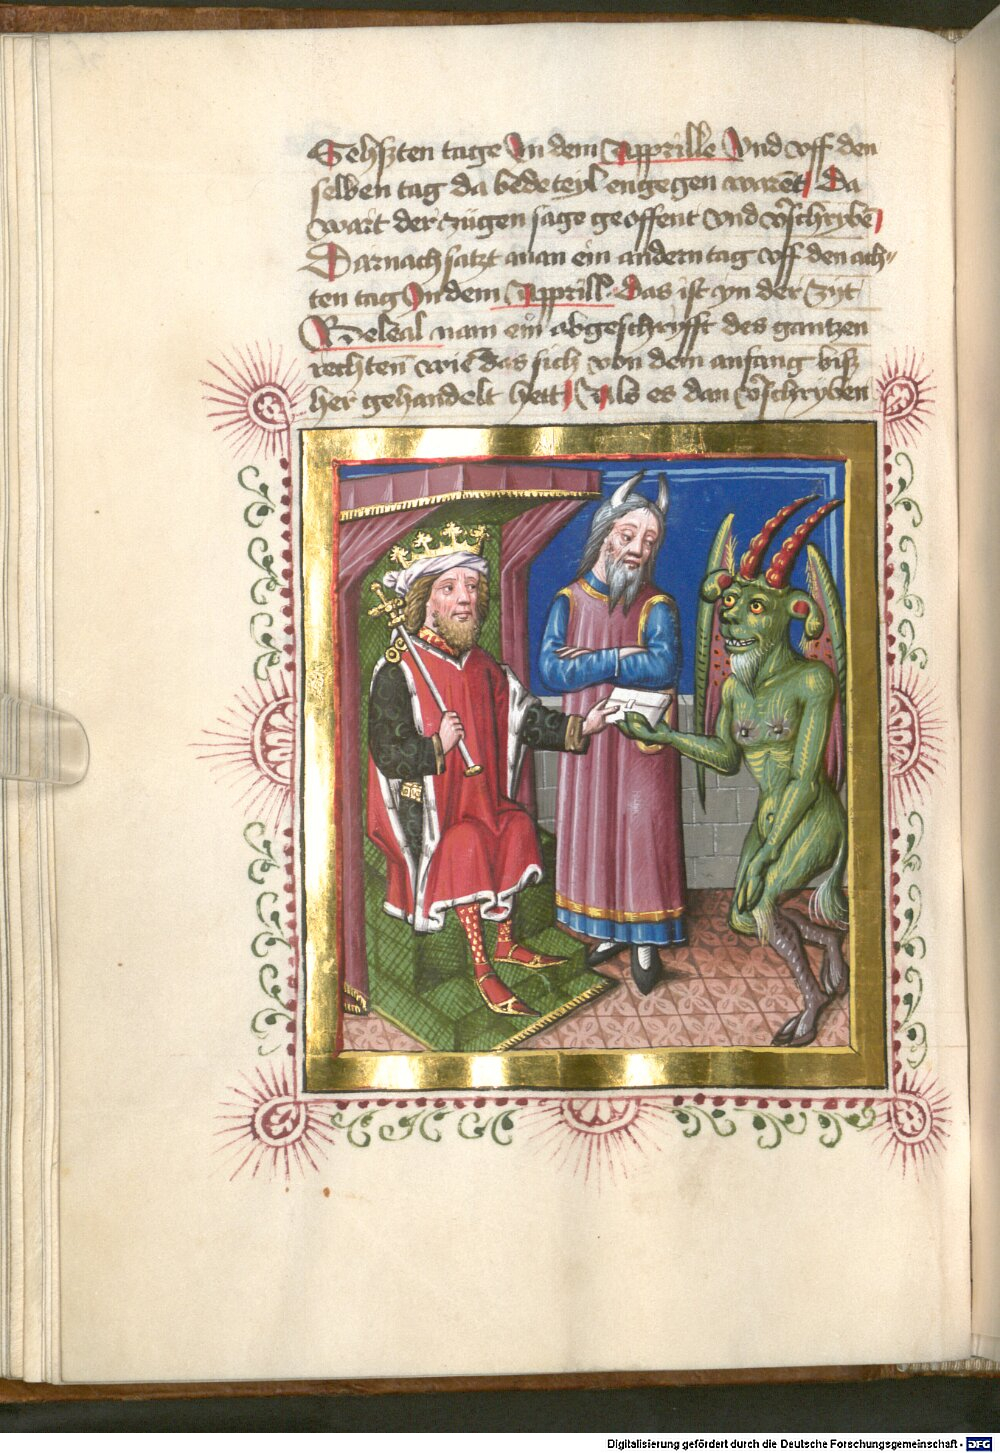 Sehßten tage In dem Apprille Vnd vff den
selben tag da bede teyl engegen warēt Da
wart der zügen sage geoffent vnd v̾schrybē
Darnach satzt man ein andern tag vff den ach-
ten tag In dem Apprill Das ist yn der zyt
Belial nam ein abgeschryfft des gantzen
rechten wie das sich von dem anfang biß
her gehandelt hett Als es dan v̾schryben
Digitalisierung gefördert durch die Deutsche Forschungsgemeinschaft - DFG